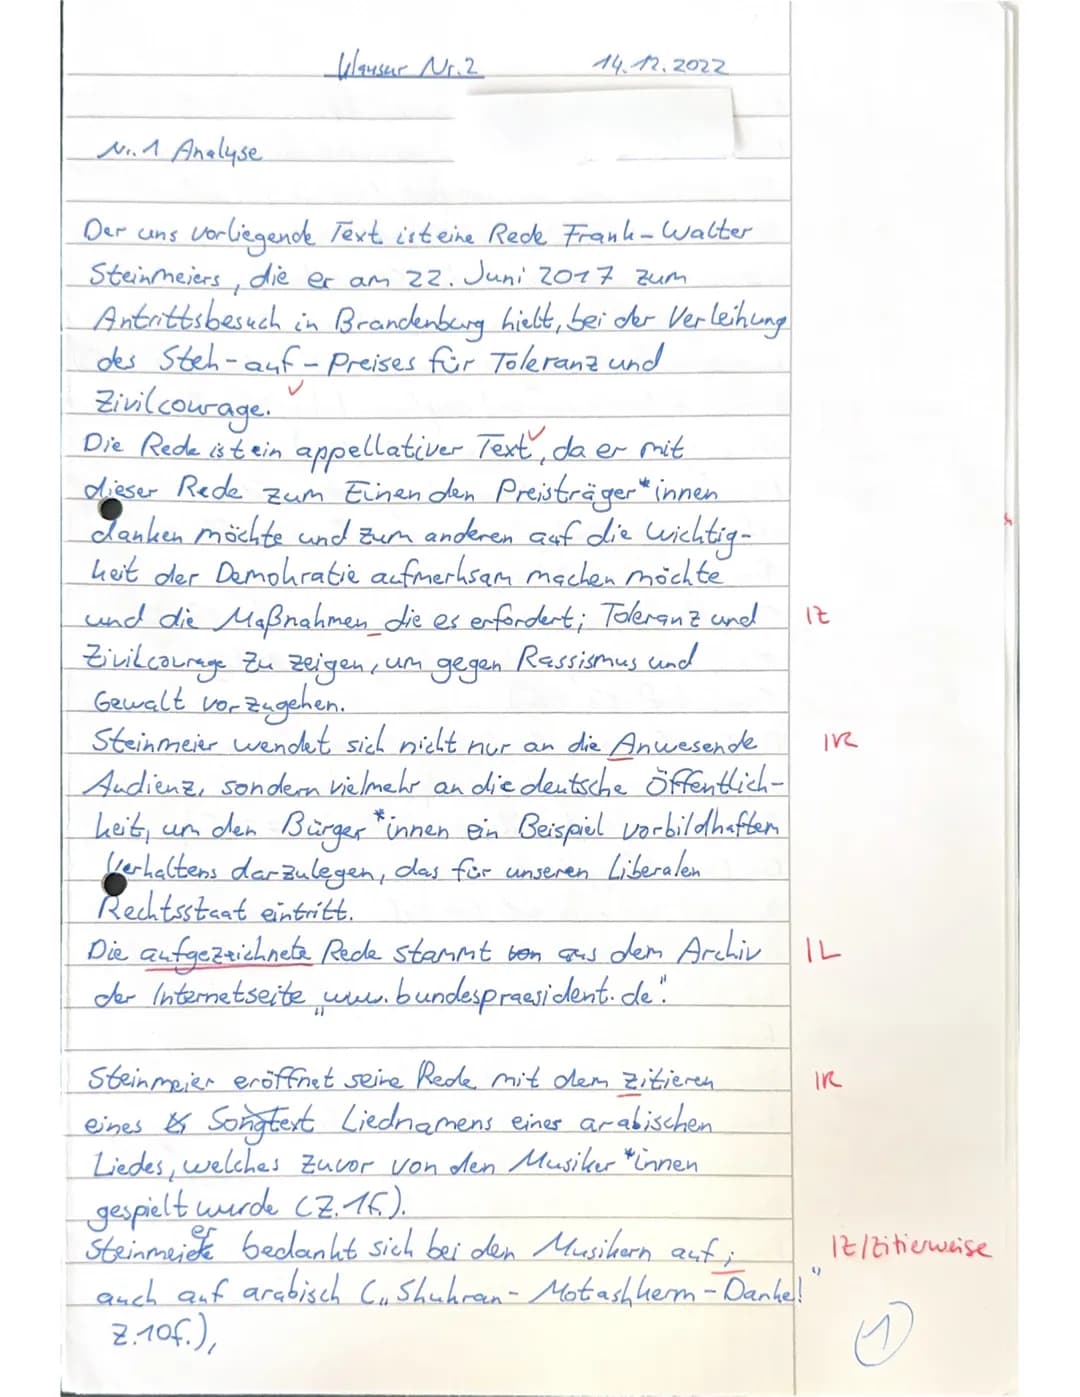 Klausur Nr.2 14.12.2022
Nr. 1 Analyse
Der uns vorliegende Text ist eine Rede Frank-Walter
Steinmeiers, die er am 22. Juni 2017 zum
Antrittsbesuch in Brandenburg hielt, bei der Verleihung
des Steh-auf-Preises für Toleranz und
Zivilcourage.
Die Rede ist ein appellativer Text, da er mit
dieser Rede zum Einen den Preisträger*innen
danken möchte und zum anderen auf die Wichtig-
keit der Demokratie aufmerksam machen möchte
und die Maßnahmen die es erfordert; Toleranz und IZ
Zivilcourage zu zeigen, um gegen Rassismus und
Gewalt vorzugehen.
Steinmeier wendet sich nicht nur an die Anwesende IR
Audienz, sondern vielmehr an die deutsche Öffentlich-
keit, um den Bürger*innen ein Beispiel vorbildhaften
Verhaltens darzulegen, das für unseren Liberalen
Rechtsstaat eintritt.
Die aufgezeichnete Rede stammt von aus dem Archiv IL
der Internetseite „www.bundespraesident.de".
Steinmeier eröffnet seine Rede mit dem zitieren IR
eines Songtext Liednamens eines arabischen
Liedes, welches zuvor von den Musiker*innen
gespielt wurde (Z.1f.).
Steinmeier bedankt sich bei den Musikern auf; IZ/Zitierweise
auch auf arabisch („Shukran - Motashkerm - Danke!"
Z.10f.),
1